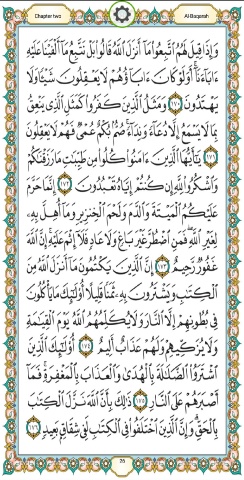 Chapter two
Al-Baqarah
وَإِذَا قِيلَ لَهُمُ ٱتَّبِعُوا۟ مَآ أَنزَلَ ٱللَّهُ قَالُوا۟ بَلْ نَتَّبِعُ مَآ أَلْفَيْنَا عَلَيْهِ
ءَابَآءَنَآ أَوَلَوْ كَانَ ءَابَآؤُهُمْ لَا يَعْقِلُونَ شَيْـًٔا وَلَا
يَهْتَدُونَ ١٧٠ وَمَثَلُ ٱلَّذِينَ كَفَرُوا۟ كَمَثَلِ ٱلَّذِى يَنْعِقُ
بِمَا لَا يَسْمَعُ إِلَّا دُعَآءً وَنِدَآءً صُمٌّۢ بُكْمٌ عُمْىٌ فَهُمْ لَا يَعْقِلُونَ
١٧١ يَـٰٓأَيُّهَا ٱلَّذِينَ ءَامَنُوا۟ كُلُوا۟ مِن طَيِّبَـٰتِ مَا رَزَقْنَـٰكُمْ
وَٱشْكُرُوا۟ لِلَّهِ إِن كُنتُمْ إِيَّاهُ تَعْبُدُونَ ١٧٢ إِنَّمَا حَرَّمَ
عَلَيْكُمُ ٱلْمَيْتَةَ وَٱلدَّمَ وَلَحْمَ ٱلْخِنزِيرِ وَمَآ أُهِلَّ بِهِۦ
لِغَيْرِ ٱللَّهِ فَمَنِ ٱضْطُرَّ غَيْرَ بَاغٍ وَلَا عَادٍ فَلَآ إِثْمَ عَلَيْهِ إِنَّ ٱللَّهَ
غَفُورٌ رَّحِيمٌ ١٧٣ إِنَّ ٱلَّذِينَ يَكْتُمُونَ مَآ أَنزَلَ ٱللَّهُ مِنَ
ٱلْكِتَـٰبِ وَيَشْتَرُونَ بِهِۦ ثَمَنًا قَلِيلًا أُو۟لَـٰٓئِكَ مَا يَأْكُلُونَ
فِى بُطُونِهِمْ إِلَّا ٱلنَّارَ وَلَا يُكَلِّمُهُمُ ٱللَّهُ يَوْمَ ٱلْقِيَـٰمَةِ
وَلَا يُزَكِّيهِمْ وَلَهُمْ عَذَابٌ أَلِيمٌ ١٧٤ أُو۟لَـٰٓئِكَ ٱلَّذِينَ
ٱشْتَرَوُا۟ ٱلضَّلَـٰلَةَ بِٱلْهُدَىٰ وَٱلْعَذَابَ بِٱلْمَغْفِرَةِ فَمَآ
أَصْبَرَهُمْ عَلَى ٱلنَّارِ ١٧٥ ذَٰلِكَ بِأَنَّ ٱللَّهَ نَزَّلَ ٱلْكِتَـٰبَ
بِٱلْحَقِّ وَإِنَّ ٱلَّذِينَ ٱخْتَلَفُوا۟ فِى ٱلْكِتَـٰبِ لَفِى شِقَاقٍۭ بَعِيدٍ ١٧٦
26